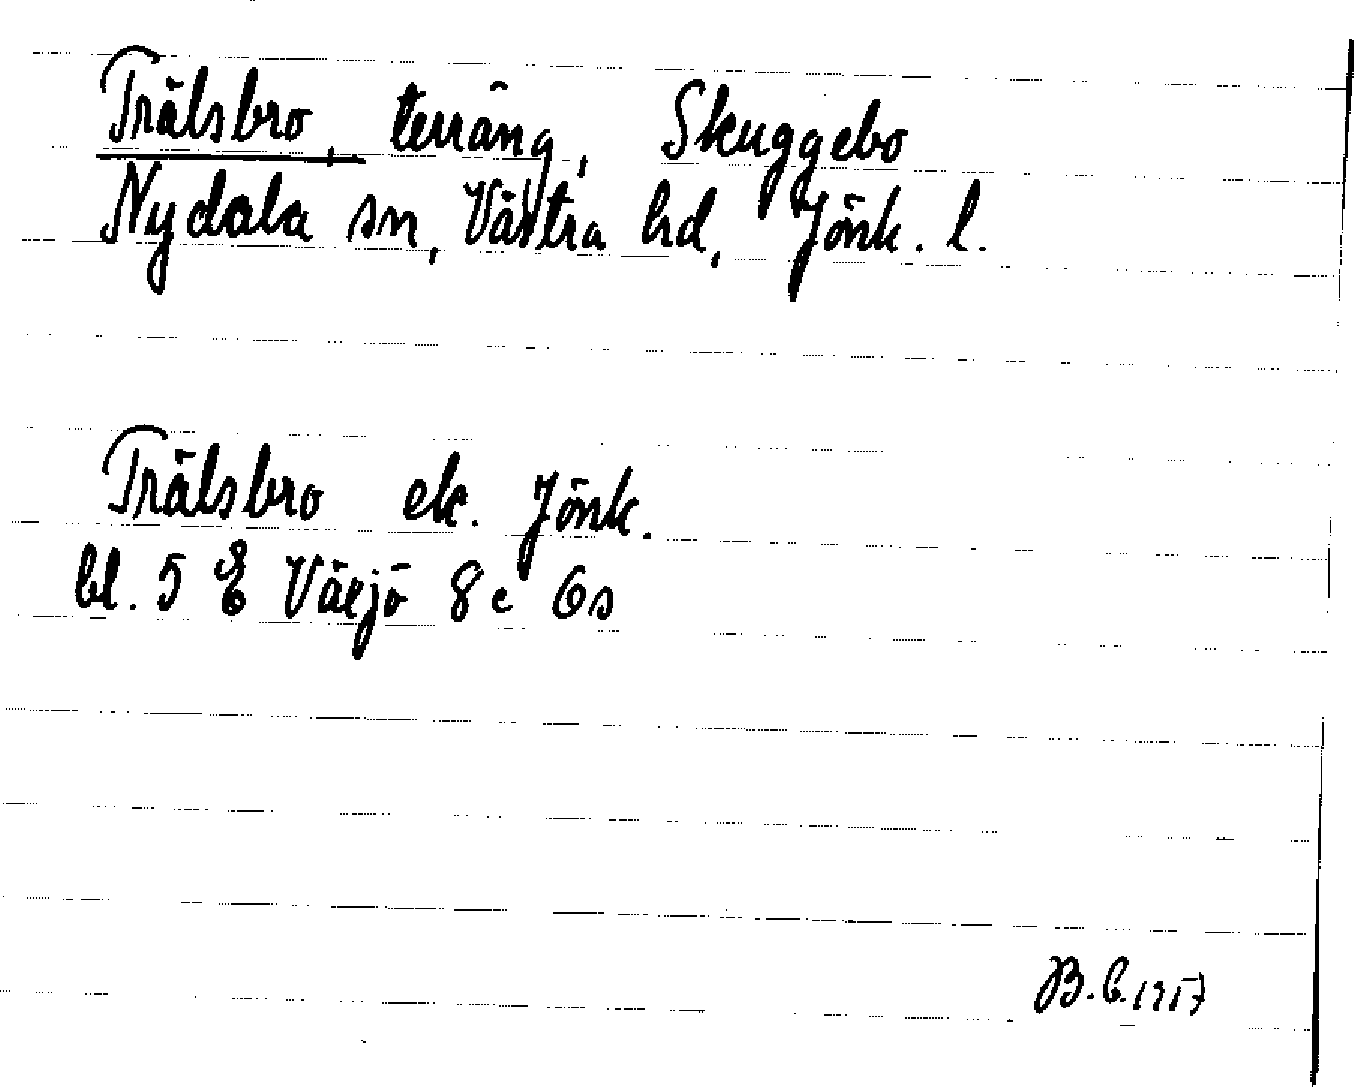 Trälsbro, terräng, Skuggebo
Nydala sn, Västra hd, Jönk. l.
Trälsbro ek. Jönk.
bl. 5 E Växjö 8 e 6s
B.E. 1957